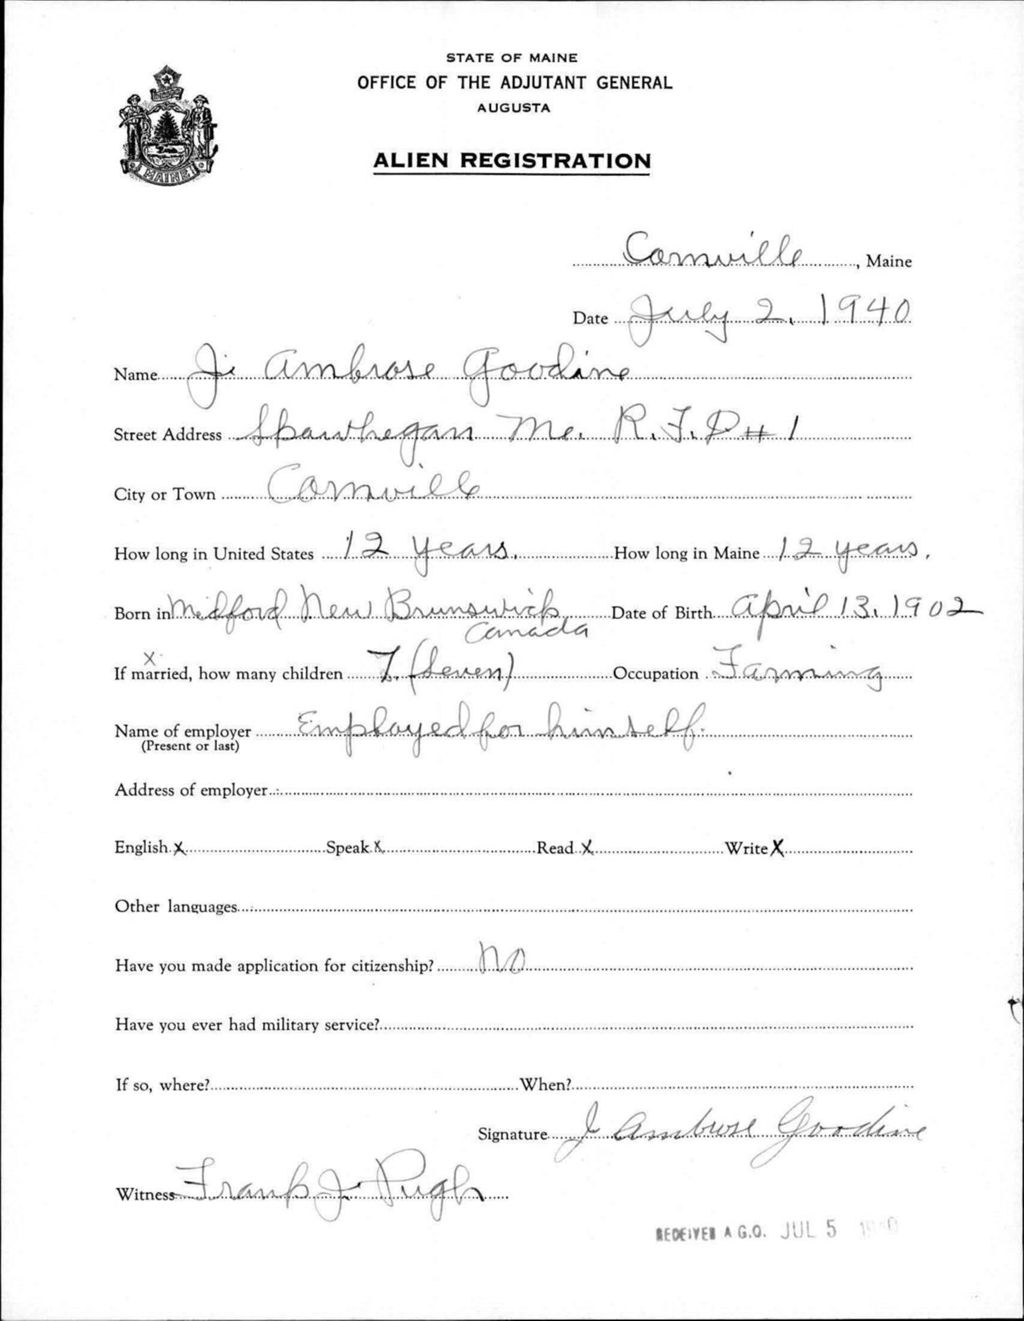 STATE OF MAINE
OFFICE OF THE ADJUTANT GENERAL
AUGUSTA
ALIEN REGISTRATION
MAINE
Cornville, Maine
Date July 2, 1940
Name J. Ambrose Goodine
Street Address Skowhegan Me. R.F.D #1
City or Town Cornville
How long in United States 12 years. How long in Maine 12 years.
Born in Medford New Brunswick Date of Birth April 13, 1902
Canada
x
If married, how many children 7. (Seven) Occupation Farming
Name of employer Employed for himself.
(Present or last)
Address of employer
English x Speak x Read x Write x
Other languages
Have you made application for citizenship? No
Have you ever had military service?
If so, where? When?
Signature J Ambrose Goodine
Witness Frank J. Pugh
RECEIVED A.G.O. JUL 5 1940